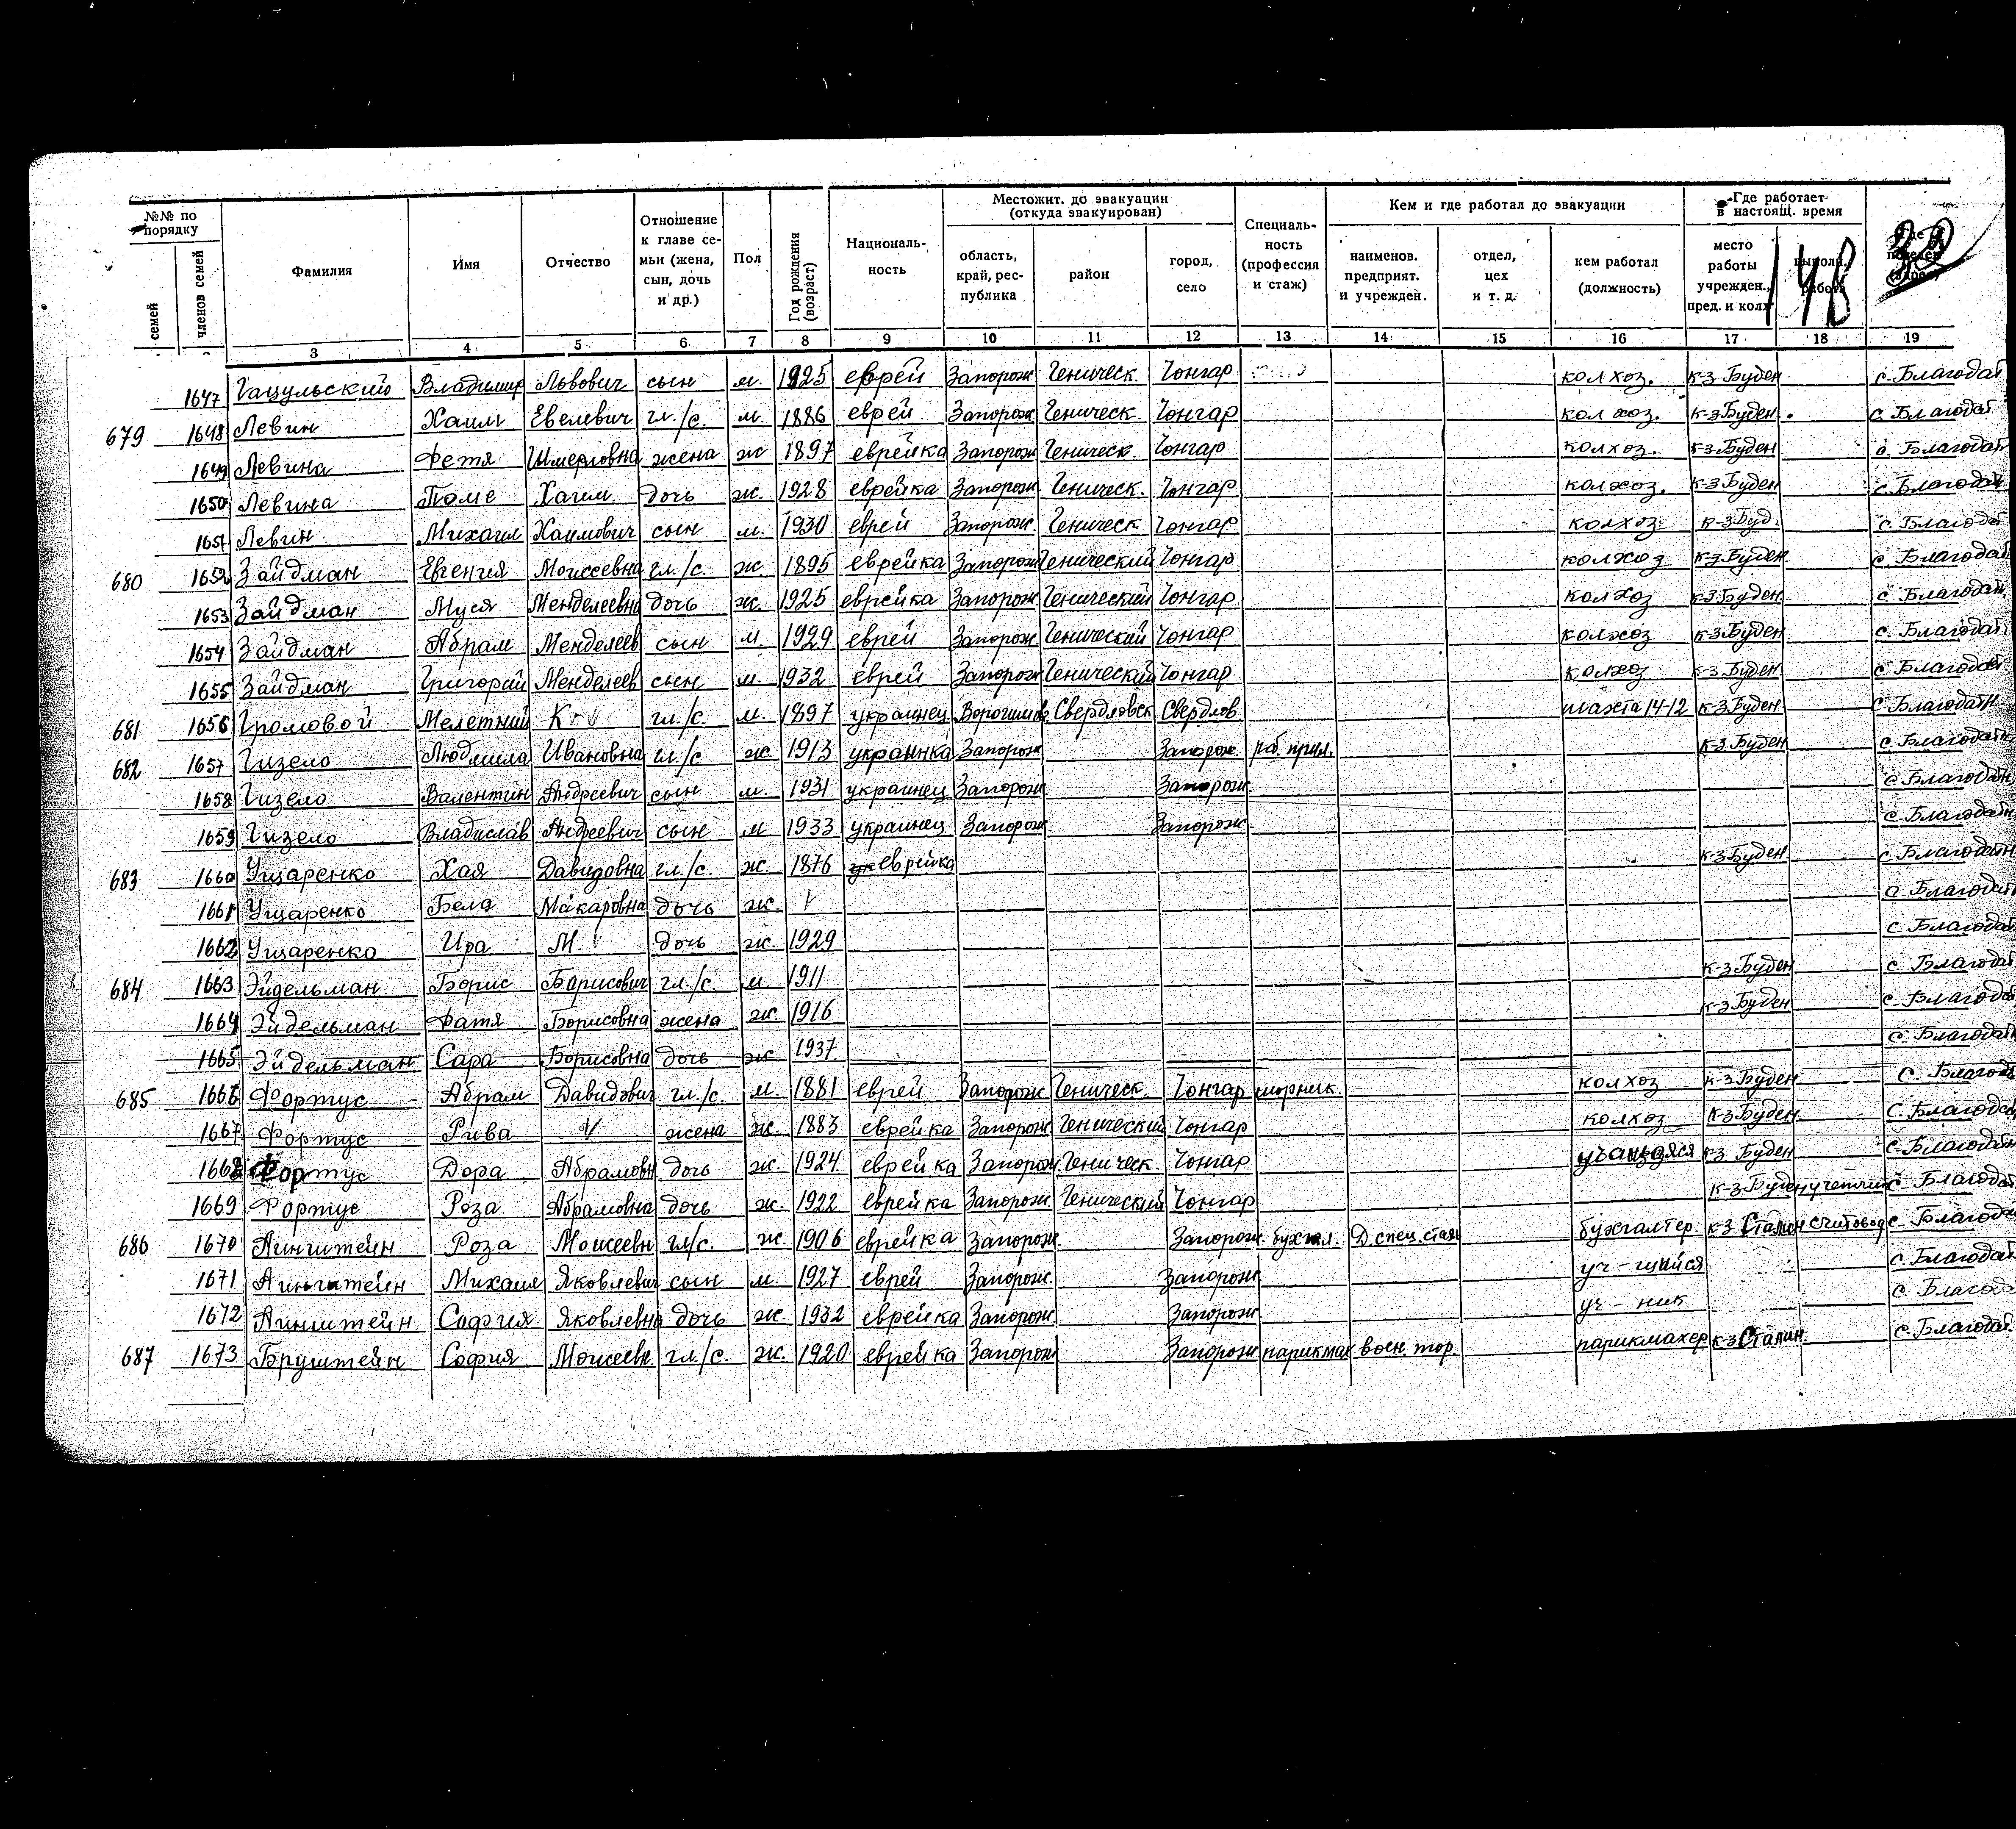 №№ по порядку
семей
членов семей
Фамилия
Имя
Отчество
Отношение к главе се- мьи (жена, сын, дочь и др.)
Пол
Год рождения (возраст)
Националь- ность
Местожит. до эвакуации (откуда эвакуирован)
область, край, рес- публика
район
город, село
Специаль- ность (профессия и стаж)
Кем и где работал до эвакуации
наименов. предприят. и учрежден.
отдел, цех и т. д.
кем работал (должность)
Где работает в настоящ. время
место работы учрежден., пред. и колх
работа
148
32
3 4 5 6 7 8 9 10 11 12 13 14 15 16 17 18 19
1647 Гацульский Владимир Львович сын м. 1925 еврей Запорож Геническ. Чонгар колхоз. к-з Буден с. Благодат
679 1648 Левин Хаим Евелевич гл./с. м. 1886 еврей Запорож Геническ. Чонгар колхоз. к-з Буден. с. Благодат
1649 Левина Фетя Шмерловна жена ж 1897 еврейка Запорож Геническ. Чонгар колхоз. к-з Буден с. Благодат
1650 Левина Поме Хаим. дочь ж. 1928 еврейка Запорож Геническ. Чонгар колхоз. к-з Буден с. Благодат
1651 Левин Михаил Хаимович сын м. 1930 еврей Запорож. Геническ Чонгар колхоз к-з Буд. с. Благодат
680 1652 Зайдман Евгения Моисеевна гл./с. ж. 1895 еврейка Запорож Генический Чонгар колхоз к-з Буден. с. Благодат
1653 Зайдман Муся Менделеевна дочь ж. 1925 еврейка Запорож. Генический Чонгар колхоз к-з Буден. с. Благодат
1654 Зайдман Абрам Менделеев сын м. 1929 еврей Запорож. Генический Чонгар колхоз к-з Буден с. Благодат
1655 Зайдман Григорий Менделеев сын м. 1932 еврей Запорож Генический Чонгар колхоз к-з Буден. с. Благодат
681 1656 Громовой Мелетий К гл./с. м. 1897 украинец Ворошилов Свердловск Свердлов. шахта 14-12 к-з Буден с. Благодатн
682 1657 Гизело Людмила Ивановна гл./с ж. 1913 украинка Запорож Запорож. раб. прил. к-з Буден с. Благодатн
1658 Гизело Валентин Андреевич сын м. 1931 украинец Запорож Запорож с. Благодатн
1659 Гизело Владислав Андреевич сын м 1933 украинец Запорож Запорож с. Благодатн
683 1660 Ущаренко Хая Давидовна гл./с. ж. 1876 еврейка к-з Буден с. Благодатн
1661 Ущаренко Бела Макаровна дочь ж. V с. Благодат
1662 Ущаренко Ира М. дочь ж. 1929 с. Благодат
684 1663 Эйдельман Борис Борисович гл./с. м 1911 к-з Буден с Благодат
1664 Эйдельман Фатя Борисовна жена ж. 1916 к-з Буден с. Благодат
1665 Эйдельман Сара Борисовна дочь ж 1937 с. Благодат
685 1666 Фортус Абрам Давидович гл./с. м. 1881 еврей Запорож Геническ. Чонгар шорник. колхоз к-з Буден с. Благод
1667 Фортус Рива V жена ж. 1883 еврейка Запорож Генический Чонгар колхоз к-з Буден с. Благодат
1668 Фортус Дора Абрамовн дочь ж. 1924 еврейка Запорож. Геническ. Чонгар учащаяся к-з Буден с. Благодат
1669 Фортус Роза Абрамовна дочь ж. 1922 еврейка Запорож. Генический Чонгар к-з Буден учетчик с. Благодат
686 1670 Айнштейн Роза Моисеевн гл/с. ж. 1906 еврейка Запорож Запорож. бухгал. Д. спец. стал бухгалтер. к-з Сталин счетовод с. Благодат
1671 Айнштейн Михаил Яковлевич сын м. 1927 еврей Запорож. Запорож уч-щийся с. Благодат
1672 Айнштейн София Яковлевна дочь ж. 1932 еврейка Запорож. Запорож. уч-ник с. Благода
687 1673 Бруштейн София Моисеевн. гл./с. ж. 1920 еврейка Запорож Запорож парикмах воен. тор. парикмахер к-з Сталин. с. Благодат